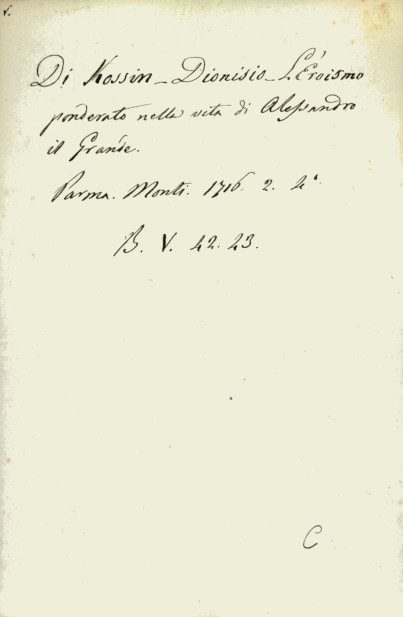 Di Kossin - Dionisio - L'Eroismo
ponderato nella vita di Alessandro
il Grande.
Parma. Monti. 1716. 2. 4°
B. V. 42. 43.
C